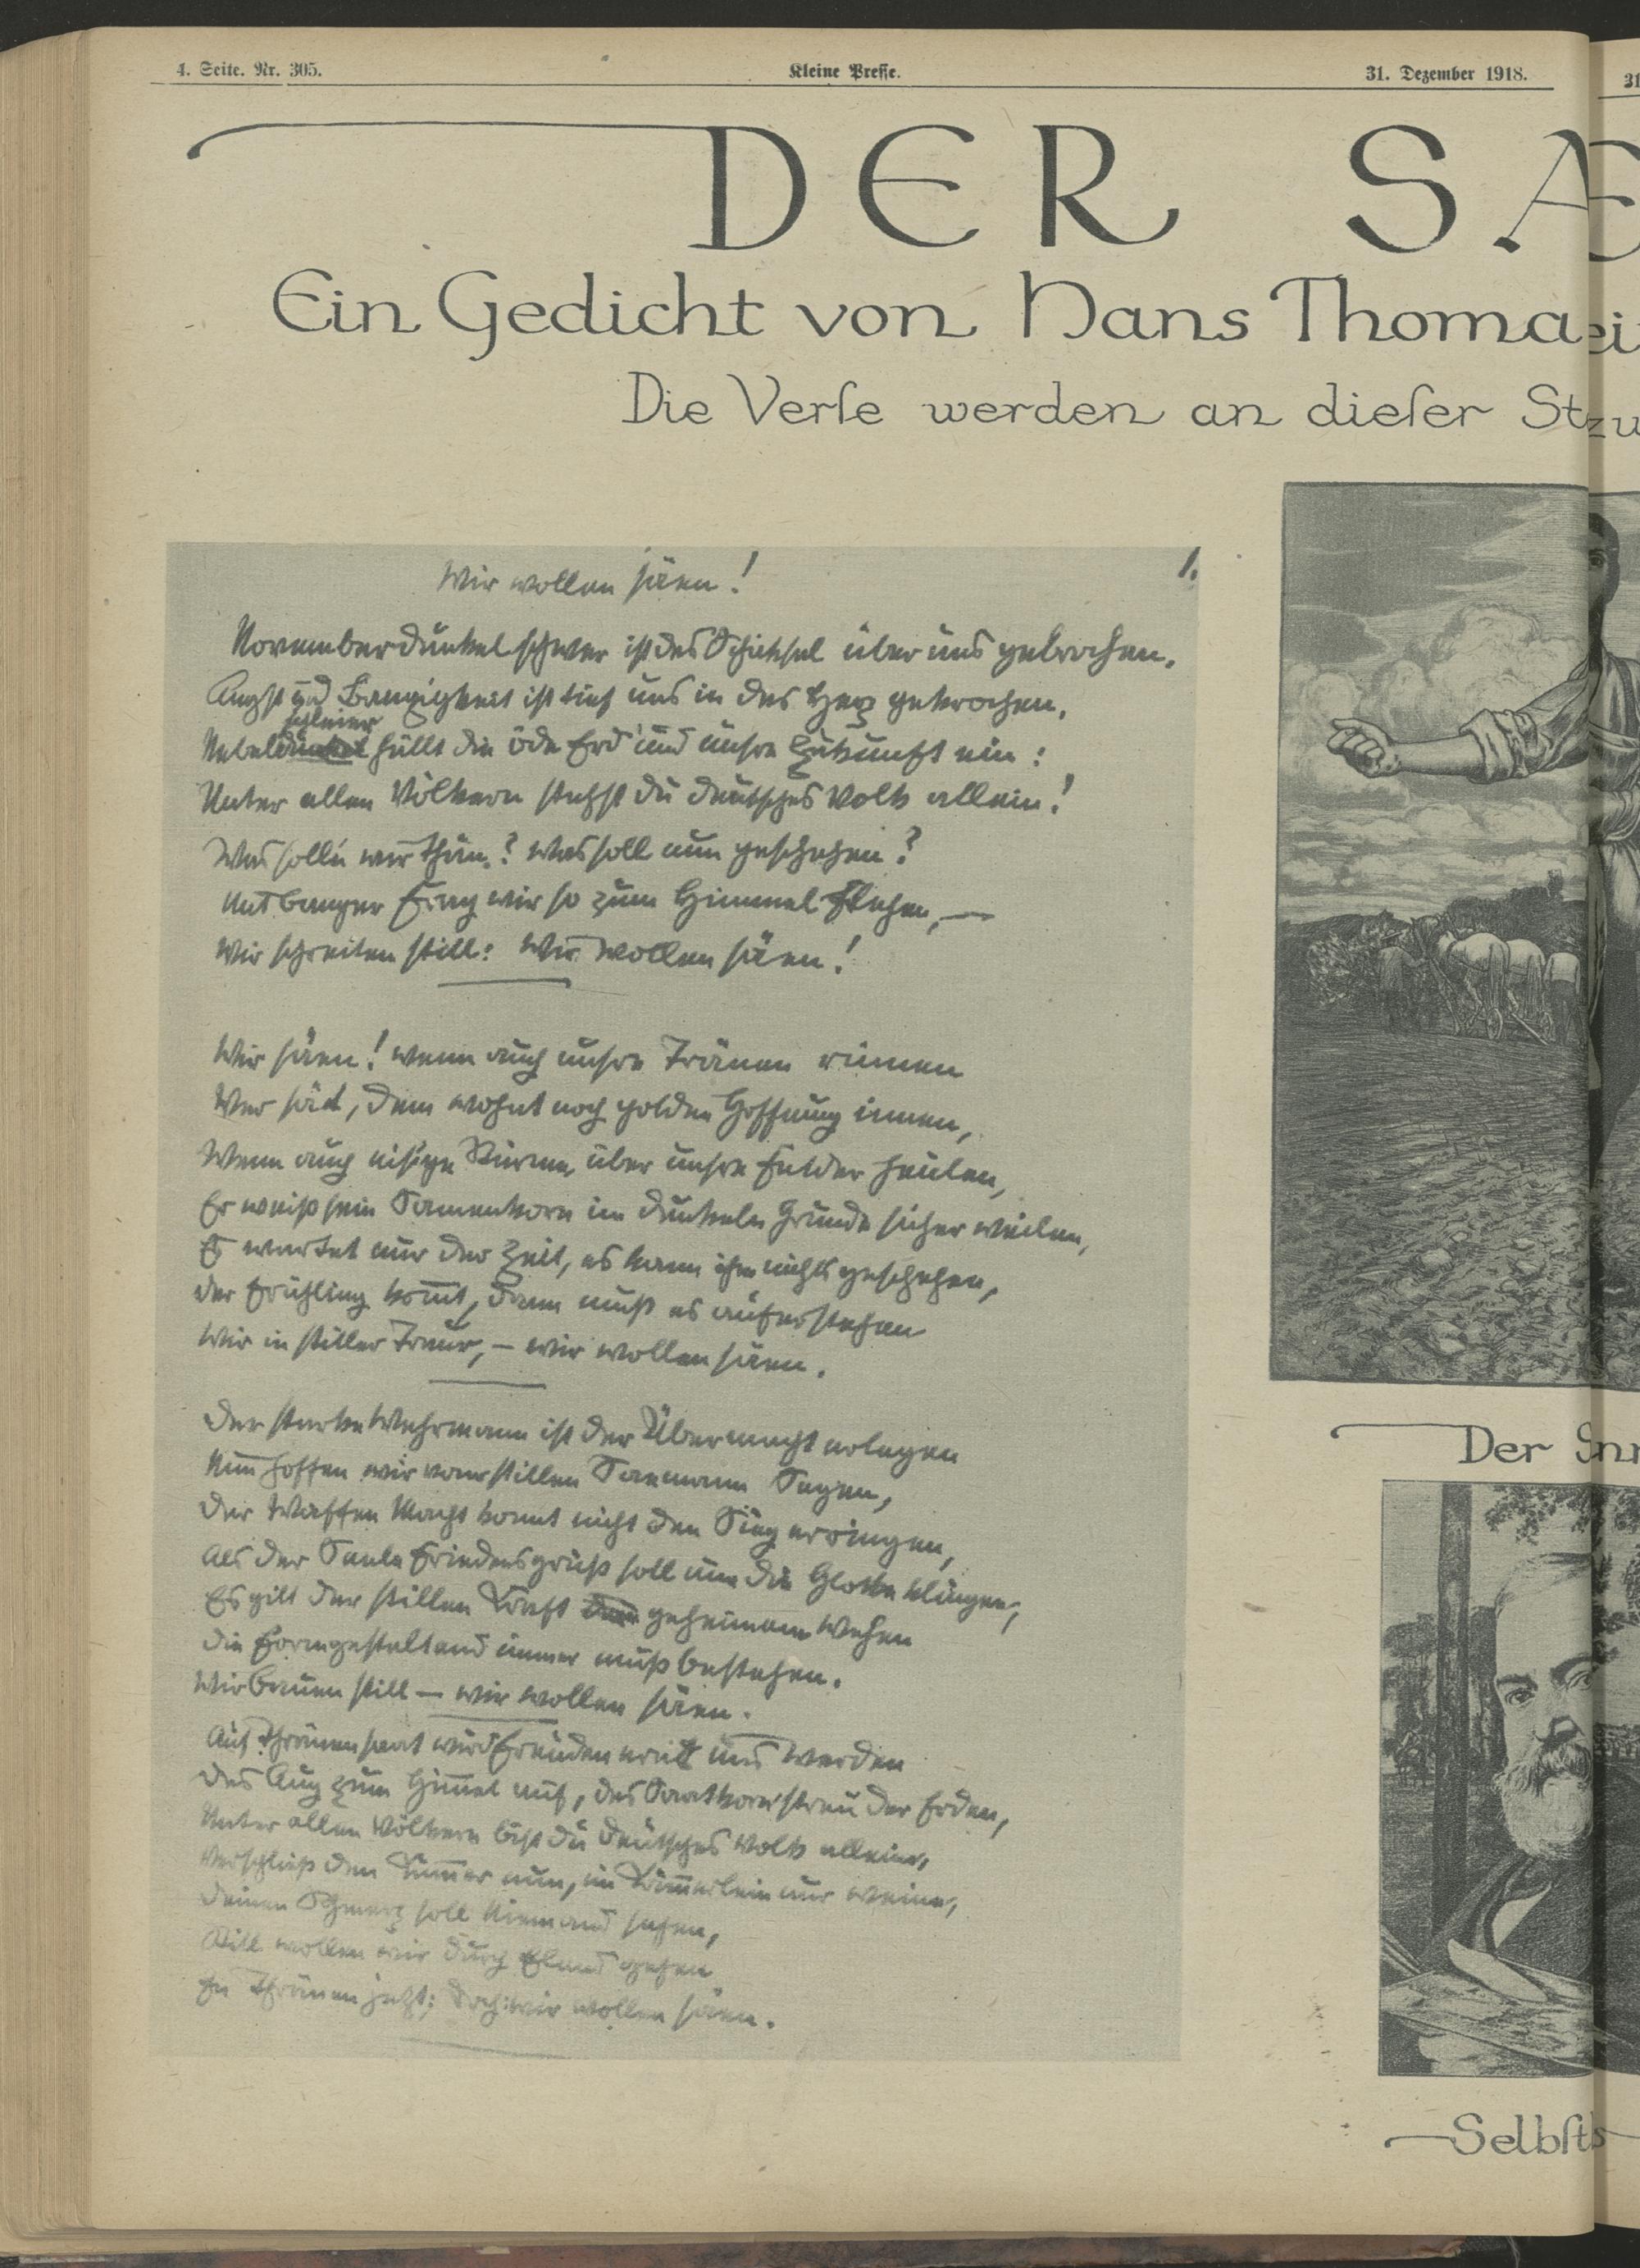 4. Seite. Nr. 305.
Kleine Presse.
31. Dezember 1918.
DER SÆ
Ein Gedicht von Hans Thoma
Die Verſe werden an dieſer St
Wir wollen säen!
1.
Novemberdunkel schwer ist das Schicksal über uns gebrochen,
Angst und Bangigkeit ist tief uns in das Herz gekrochen,
schleier
Nebeldunkel hüllt die öde Erd' und unsre Zukunft ein:
Unter allen Völkern stehst du deutsches Volk allein!
Was solln wir thun? was soll nun geschehen?
Mit banger Frag wir so zum Himmel flehen, —
Wir schreiten still: Wir wollen säen!
Wir säen! wenn auch unsre Tränen rinnen
Wer säet, dem wohnt noch golden Hoffnung innen,
Wenn auch eisige Stürme, über unsre Felder heulen,
Er weiß sein Samenkorn im dunkeln Grunde sicher weilen,
Es wartet nur der Zeit, es kann ihm nichts geschehen,
der Frühling kom̅t, dann muß es auferstehen
Wir in stiller Traur, — wir wollen säen.
Der starke Wehrmann ist der Übermacht erlegen
Nun hoffen wir vom stillen Saemann Segen,
Der Waffen Macht konnt nicht den Sieg erringen,
Als der Seele Friedensgruß soll nun die Glocke klingen,
Es gilt der stillen Kraft geheimem Wehen
die Formgestaltend immer muß bestehen.
Wir bauen still — wir wollen säen.
Aus Thränensaat wird Freuden uns werden
Das Aug zum Him̅el auf, das Saatkorn streu der Erden,
Unter allen Völkern bist du deutsches Volk alleine,
Verschließ den Kum̅er nun, im Käm̅erlein nur weine,
Deinen Schmerz soll Niemand sehen,
Still wollen wir durch Elend gehen
In Thränen jetzt; doch: wir wollen säen.
Der
Selbſt